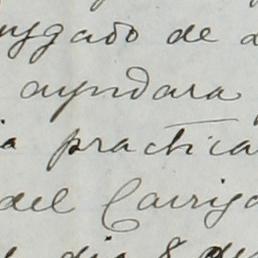 uzgado de
ayudara
a practica
del Carrig
dia 8 de